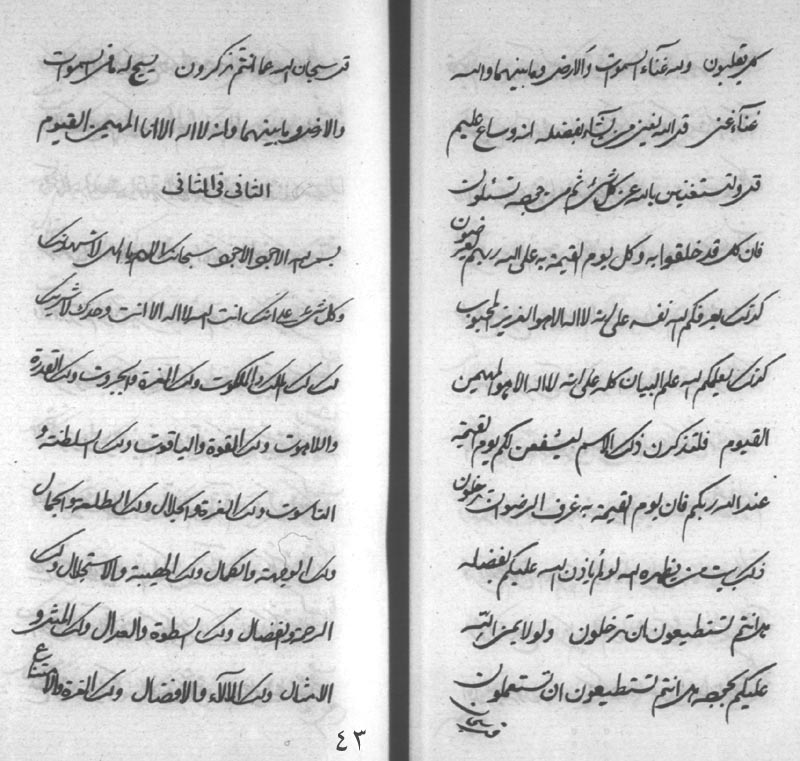 كم يقلبون ولله غناء السموات والارض وما بينهما والله
غناء غنى قل الله يغنين من يشاء بفضله انه وساع عليم
قل ولتستغنين بالله عن كل شئ ثم من حجمه تسئلون
فان كل قد خلقوا به وكل يوم القيمة به على الله ربهم يعرضون
كذلك يعرفكم الله نفسه على انه لا اله الا هو العزيز المحبوب
كذلك يعلمكم الله علم البيان كله على انه لا اله الا هو المهيمن
القيوم فلتذكرن ذلك الاسم ليشفعن لكم يوم القيمة
عند الله ربكم فان يوم القيمة به غرف الرضوان تدخلون
ذلك بيت من يظهره الله لو لم ياذن الله عليكم بفضله
هل انتم تستطيعون ان تدخلون ولولا يمنن الله
عليكم بحججه هل انتم تستطيعون ان تستعملون
قل سبحان
قل سبحان الله عما انتم تذكرون يسبح له ما في السموات
والارض وما بينهما وانه لا اله الا انا المهيمن القيوم
الثانى فى الثانى
بسم الله الاجود الاجود سبحانك اللهم يا الهى لاشهدنك
وكل شئ على انك انت الله لا اله الا انت وحدك لا شريك
لك لك الملك والملكوت ولك العزة والجبروت ولك القدرة
واللاهوت ولك القوة والياقوت ولك السلطنة و
الناسوت ولك العزة والجلال ولك الطلعة والجمال
ولك الوجهة والكمال ولك الهيبة والاستجلال ولك
الرحمة والفضال ولك السطوة والعدال ولك المثل و
الامثال ولك الالاء والافضال ولك العزة والامتناع
٤٣